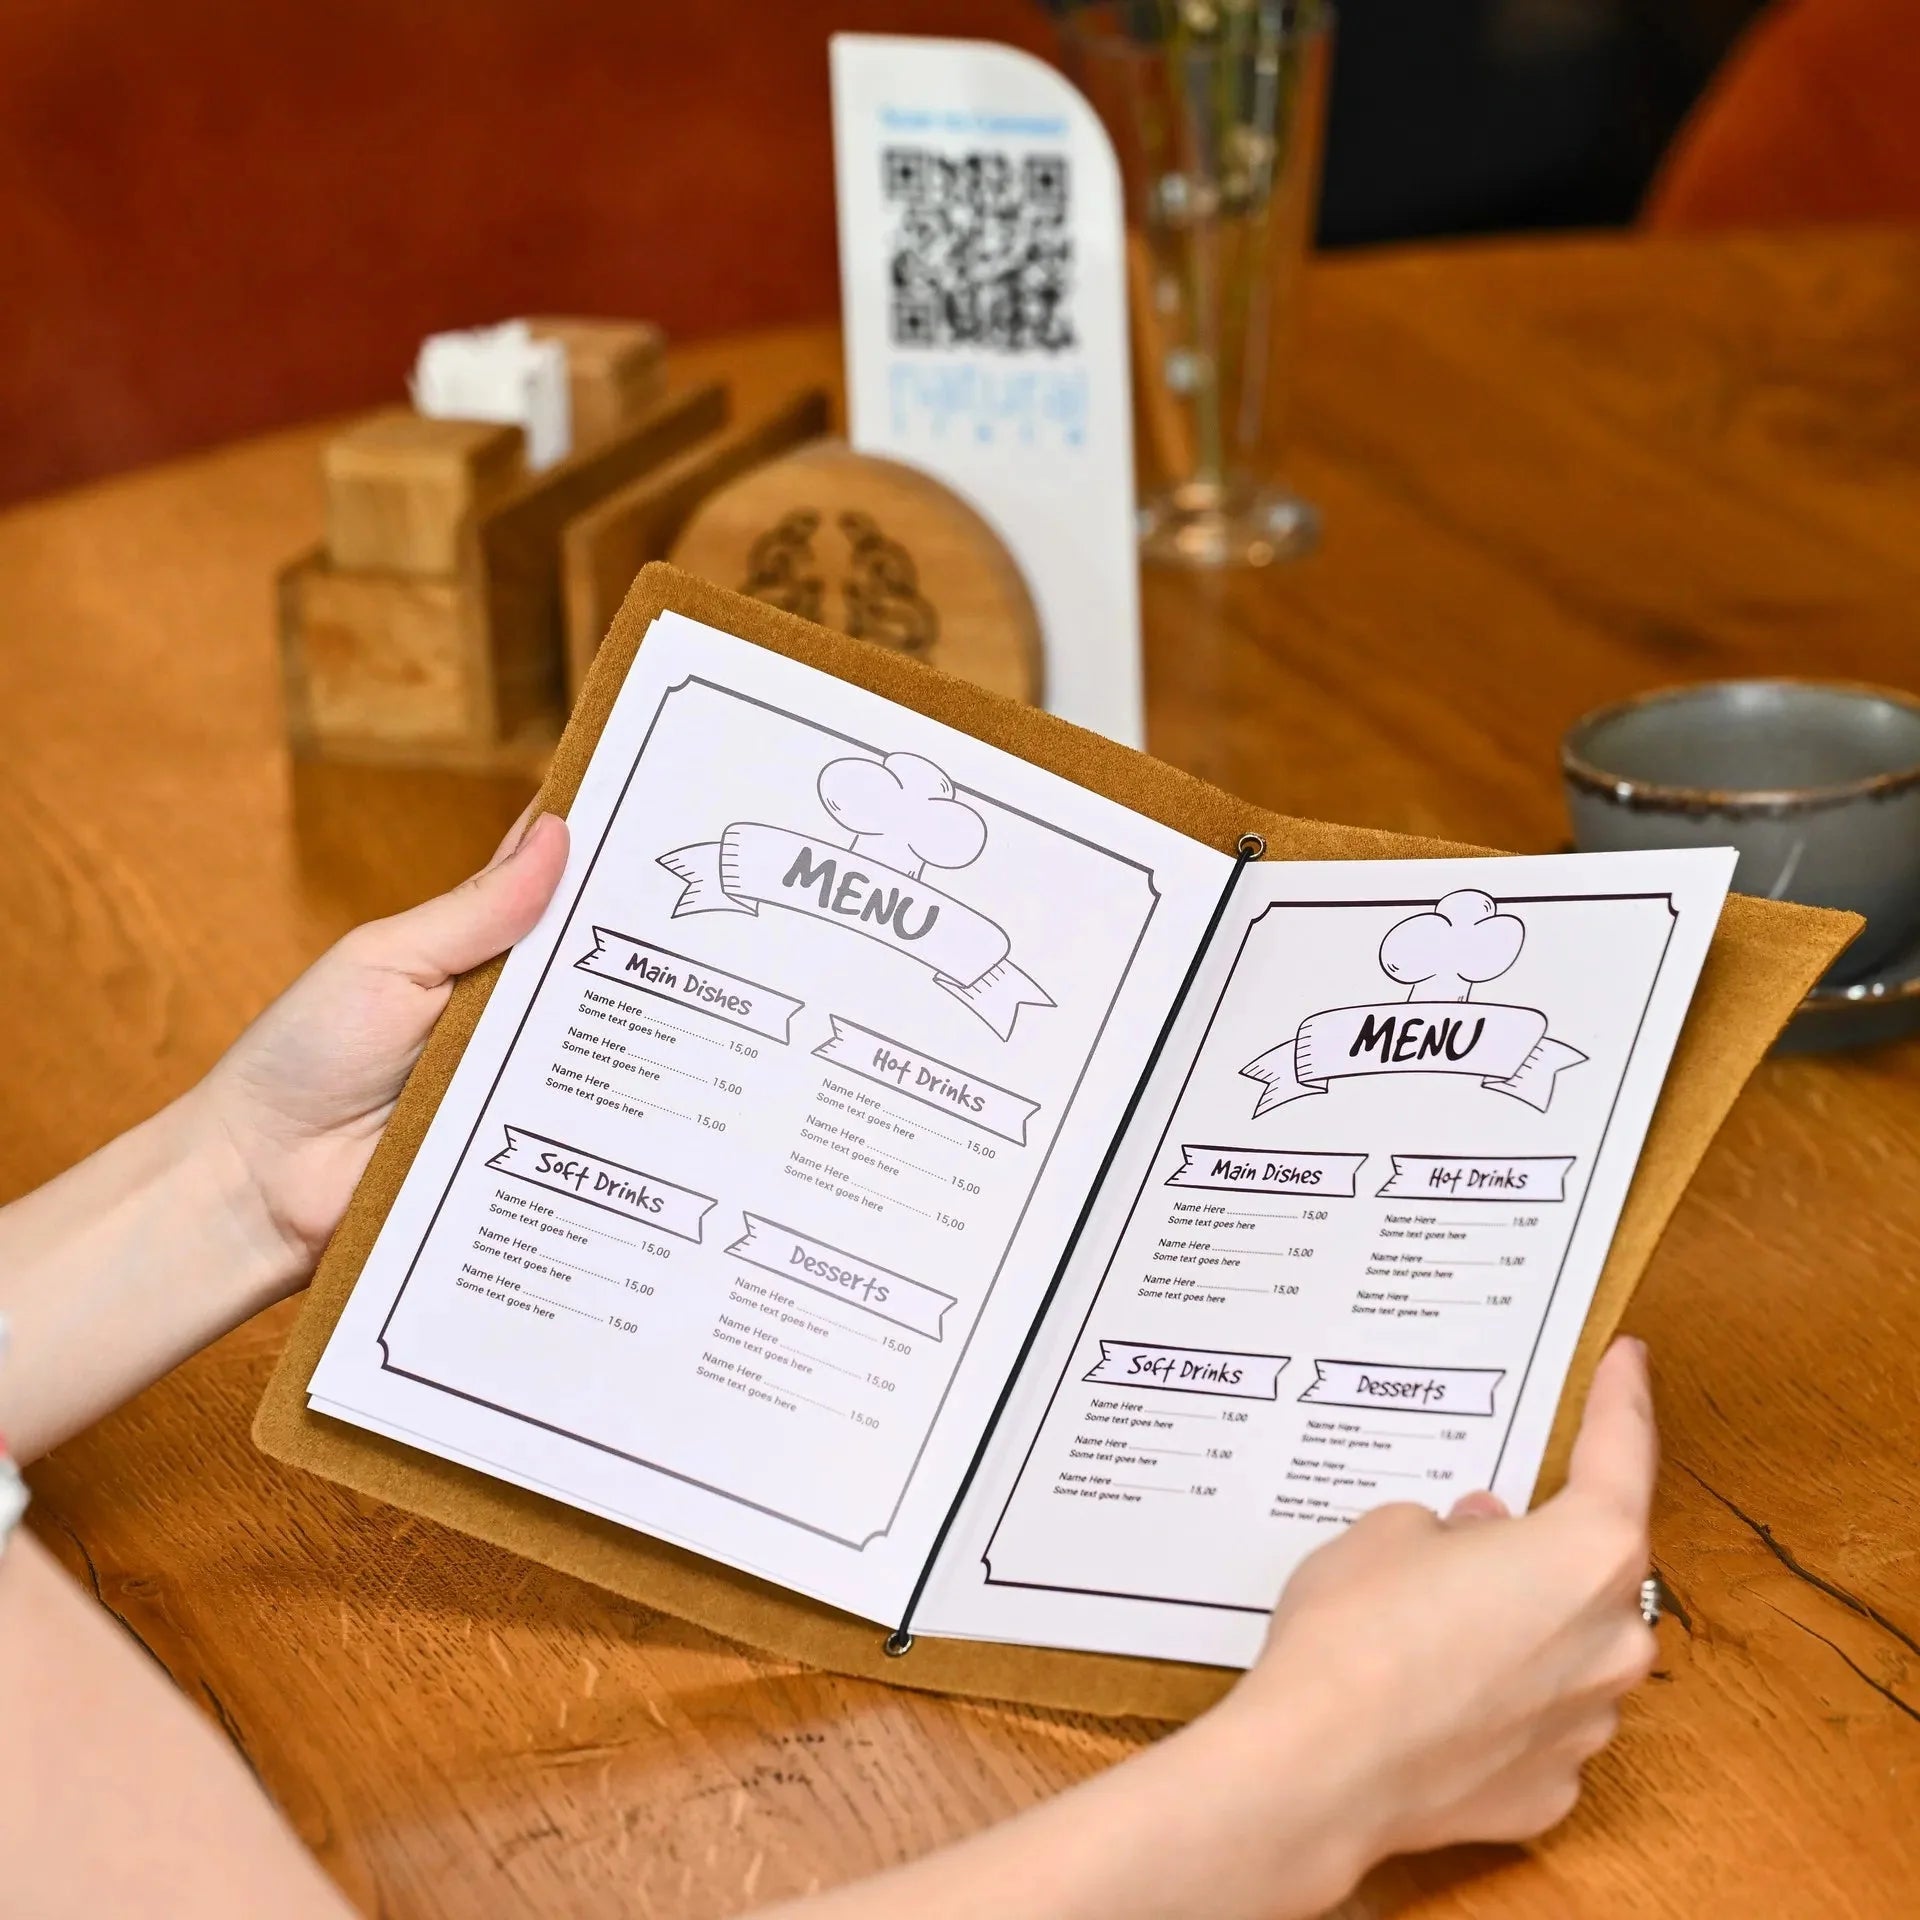 Scan to Connect
natural
MENU
Main Dishes
Name Here 15,00
Some text goes here
Name Here 15,00
Some text goes here
Name Here 15,00
Some text goes here
Hot Drinks
Name Here 15,00
Some text goes here
Name Here 15,00
Some text goes here
Name Here 15,00
Some text goes here
Soft Drinks
Name Here 15,00
Some text goes here
Name Here 15,00
Some text goes here
Name Here 15,00
Some text goes here
Desserts
Name Here 15,00
Some text goes here
Name Here 15,00
Some text goes here
Name Here 15,00
Some text goes here
MENU
Main Dishes
Name Here 15,00
Some text goes here
Name Here 15,00
Some text goes here
Name Here 15,00
Some text goes here
Hot Drinks
Name Here 15,00
Some text goes here
Name Here 15,00
Some text goes here
Name Here 15,00
Some text goes here
Soft Drinks
Name Here 15,00
Some text goes here
Name Here 15,00
Some text goes here
Name Here 15,00
Some text goes here
Desserts
Name Here 15,00
Some text goes here
Name Here 15,00
Some text goes here
Name Here
Some text goes here